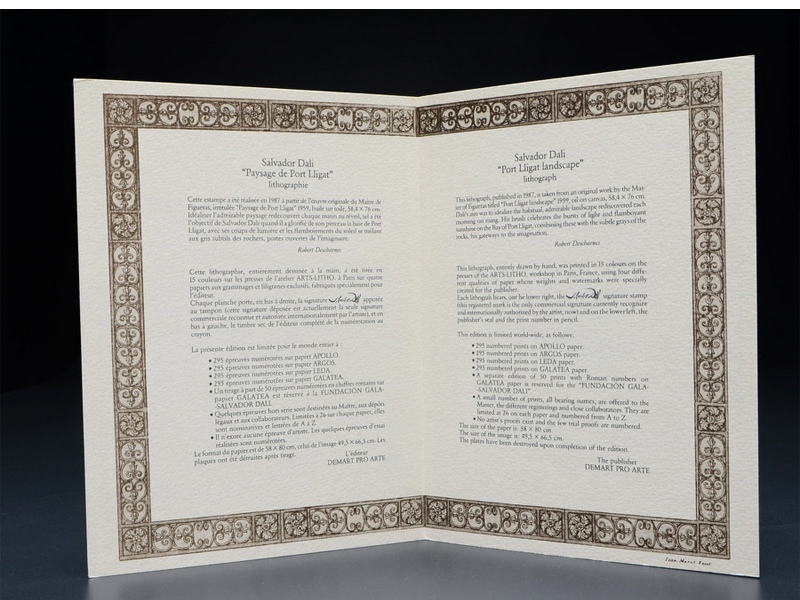 Salvador Dali
"Paysage de Port Lligat"
lithographie
Cette estampe a été réalisée en 1987 à partir de l'œuvre originale du Maître de
Figueras, intitulée "Paysage de Port Lligat" 1959, huile sur toile, 58,4 × 76 cm.
Idéaliser l'admirable paysage redécouvert chaque matin au réveil, tel a été
l'objectif de Salvador Dali quand il a glorifié de son pinceau la baie de Port
Lligat, avec ses coups de lumière et les flamboiements du soleil se mêlant
aux gris subtils des rochers, portes ouvertes de l'imaginaire.
Robert Descharnes
Cette lithographie, entièrement dessinée à la main, a été tirée en
15 couleurs sur les presses de l'atelier ARTS-LITHO. à Paris sur quatre
papiers aux grammages et filigranes exclusifs, fabriqués spécialement pour
l'éditeur.
Chaque planche porte, en bas à droite, la signature apposée
au tampon (cette signature déposée est actuellement la seule signature
commerciale reconnue et autorisée internationalement par l'artiste), et en
bas à gauche, le timbre sec de l'éditeur complété de la numérotation au
crayon.
La présente édition est limitée pour le monde entier à :
• 295 épreuves numérotées sur papier APOLLO.
• 295 épreuves numérotées sur papier ARGOS.
• 295 épreuves numérotées sur papier LEDA.
• 295 épreuves numérotées sur papier GALATEA.
• Un tirage à part de 50 épreuves numérotées en chiffres romains sur
papier GALATEA est réservé à la FUNDACION GALA-
-SALVADOR DALI.
• Quelques épreuves hors série sont destinées au Maître, aux dépôts
légaux et aux collaborateurs. Limitées à 26 sur chaque papier, elles
sont nominatives et lettrées de A à Z.
• Il n'existe aucune épreuve d'artiste. Les quelques épreuves d'essai
réalisées sont numérotées.
Le format du papier est de 58 × 80 cm, celui de l'image 49,5 × 66,5 cm. Les
plaques ont été détruites après tirage.
L'éditeur
DEMART PRO ARTE
Salvador Dali
"Port Lligat landscape"
lithograph
This lithograph, published in 1987, is taken from an original work by the Mas-
ter of Figueras titled "Port Lligat landscape" 1959, oil on canvas, 58,4 × 76 cm.
Dali's aim was to idealize the habitual, admirable landscape rediscovered each
morning on rising. His brush celebrates the bursts of light and flamboyant
sunshine on the Bay of Port Lligat, combining these with the subtle grays of the
rocks, his gateways to the imagination.
Robert Descharnes
This lithograph, entirely drawn by hand, was printed in 15 colours on the
presses of the ARTS-LITHO. workshop in Paris, France, using four diffe-
rent qualities of paper whose weights and watermarks were specially
created for the publisher.
Each lithograph bears, our he lower right, the signature stamp
(this registered mark is the only commercial signature currently recognize
and internationally authorised by the artist, now) and on the lower left, the
publisher's seal and the print number in pencil.
This edition is limited world-wide, as follows:
• 295 numbered prints on APOLLO paper.
• 295 numbered prints on ARGOS paper.
• 295 numbered prints on LEDA paper.
• 295 numbered prints on GALATEA paper.
• A separate edition of 50 prints with Roman numbers on
GALATEA paper is reserved for the "FUNDACION GALA-
-SALVADOR DALI".
• A small number of prints, all bearing names, are offered to the
Master, the different registerings and close collaborators. They are
limited at 26 on each paper and numbered from A to Z.
• No artist's proofs exist and the few trial proofs are numbered.
The size of the paper is: 58 × 80 cm.
The size of the image is: 49,5 × 66,5 cm.
The plates have been destroyed upon completion of the edition.
The publisher
DEMART PRO ARTE